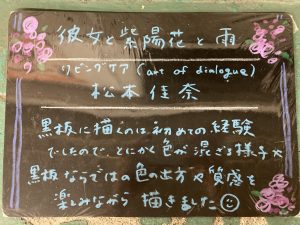 彼女と紫陽花と雨
リビングケア (art of dialogue)
松本佳奈
黒板に描くのは初めての経験
でしたので とにかく色が混ざる様子や
黒板ならではの色の出方や質感を
楽しみながら 描きました